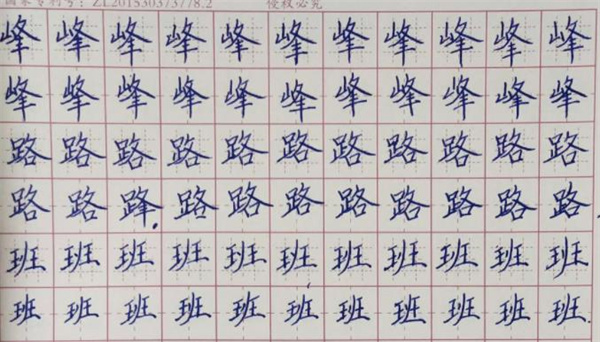 国家专利号：ZL201530373778.2 侵权必究
峰峰峰峰峰峰峰峰峰峰峰
峰峰峰峰峰峰峰峰峰峰峰
路路路路路路路路路路路
路路路路路路路路路路
班班班班班班班班班班班
班班班班班班班班班班班